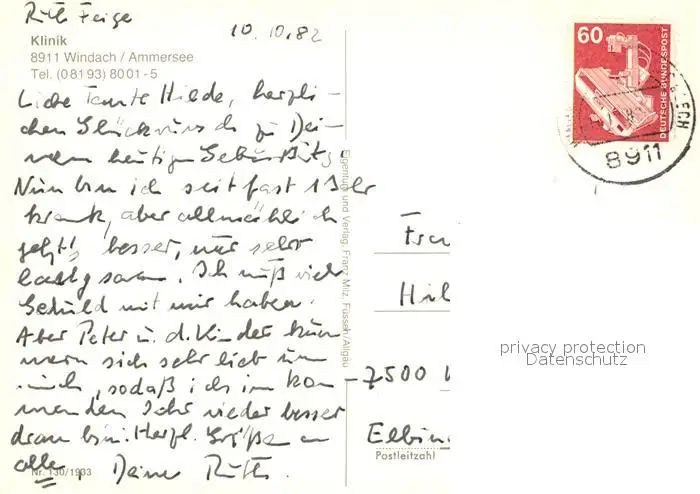 Ruth Feige
10.10.82
Klinik
8911 Windach / Ammersee
Tel. (08193) 8001-5
Liebe Tante Hilde, herzli-
chen Glückwunsch zu Dei-
nem heutigen Geburtstg.
Nun bin ich seit fast 1 Jahr
krank, aber allmählich
geht's besser, nur sehr
langsam. Ich muß viel
Geduld mit mir haben.
Aber Peter u. d. Kinder küm
mern sich sehr lieb um
mich, sodaß ich im kom-
menden Jahr wieder besser
dran bin. Herzl. Grüße an
alle, Deine Ruth.
Nr. 130/1933
Eigentum und Verlag: Franz Milz, Füssen/Allgäu
60
DEUTSCHE BUNDESPOST
8911
Frau
Hil
7500
Elbin
Postleitzahl
privacy protection
Datenschutz